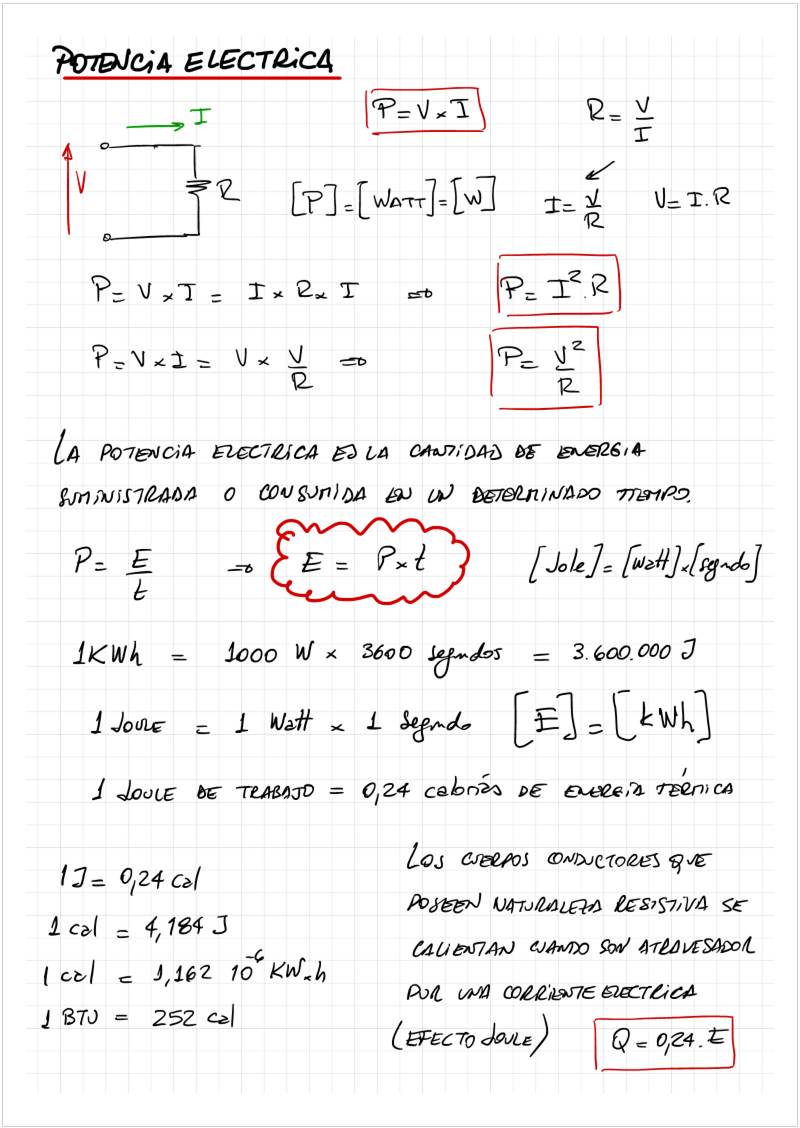 POTENCIA ELECTRICA
I
P = V x I
R = V/I
V
R
[P] = [WATT] = [W]
I = V/R
V = I . R
P = V x I = I x R x I ⇒ P = I² . R
P = V x I = V x V/R ⇒ P = V²/R
LA POTENCIA ELECTRICA ES LA CANTIDAD DE ENERGIA
SUMINISTRADA O CONSUMIDA EN UN DETERMINADO TIEMPO.
P = E/t ⇒ E = P x t [Jole] = [Watt] x [segndo]
1KWh = 1000 W x 3600 segndos = 3.600.000 J
1 JOULE = 1 Watt x 1 Segndo [E] = [kWh]
1 JOULE DE TRABAJO = 0,24 calorías DE ENERGÍA TÉRMICA
1J = 0,24 cal
1 cal = 4,184 J
1 cal = 1,162 10⁻⁶ KW.h
1 BTU = 252 cal
LOS CUERPOS CONDUCTORES QUE
POSEEN NATURALEZA RESISTIVA SE
CALIENTAN CUANDO SON ATRAVESADOR
POR UNA CORRIENTE ELECTRICA
(EFECTO JOULE) Q = 0,24 . E